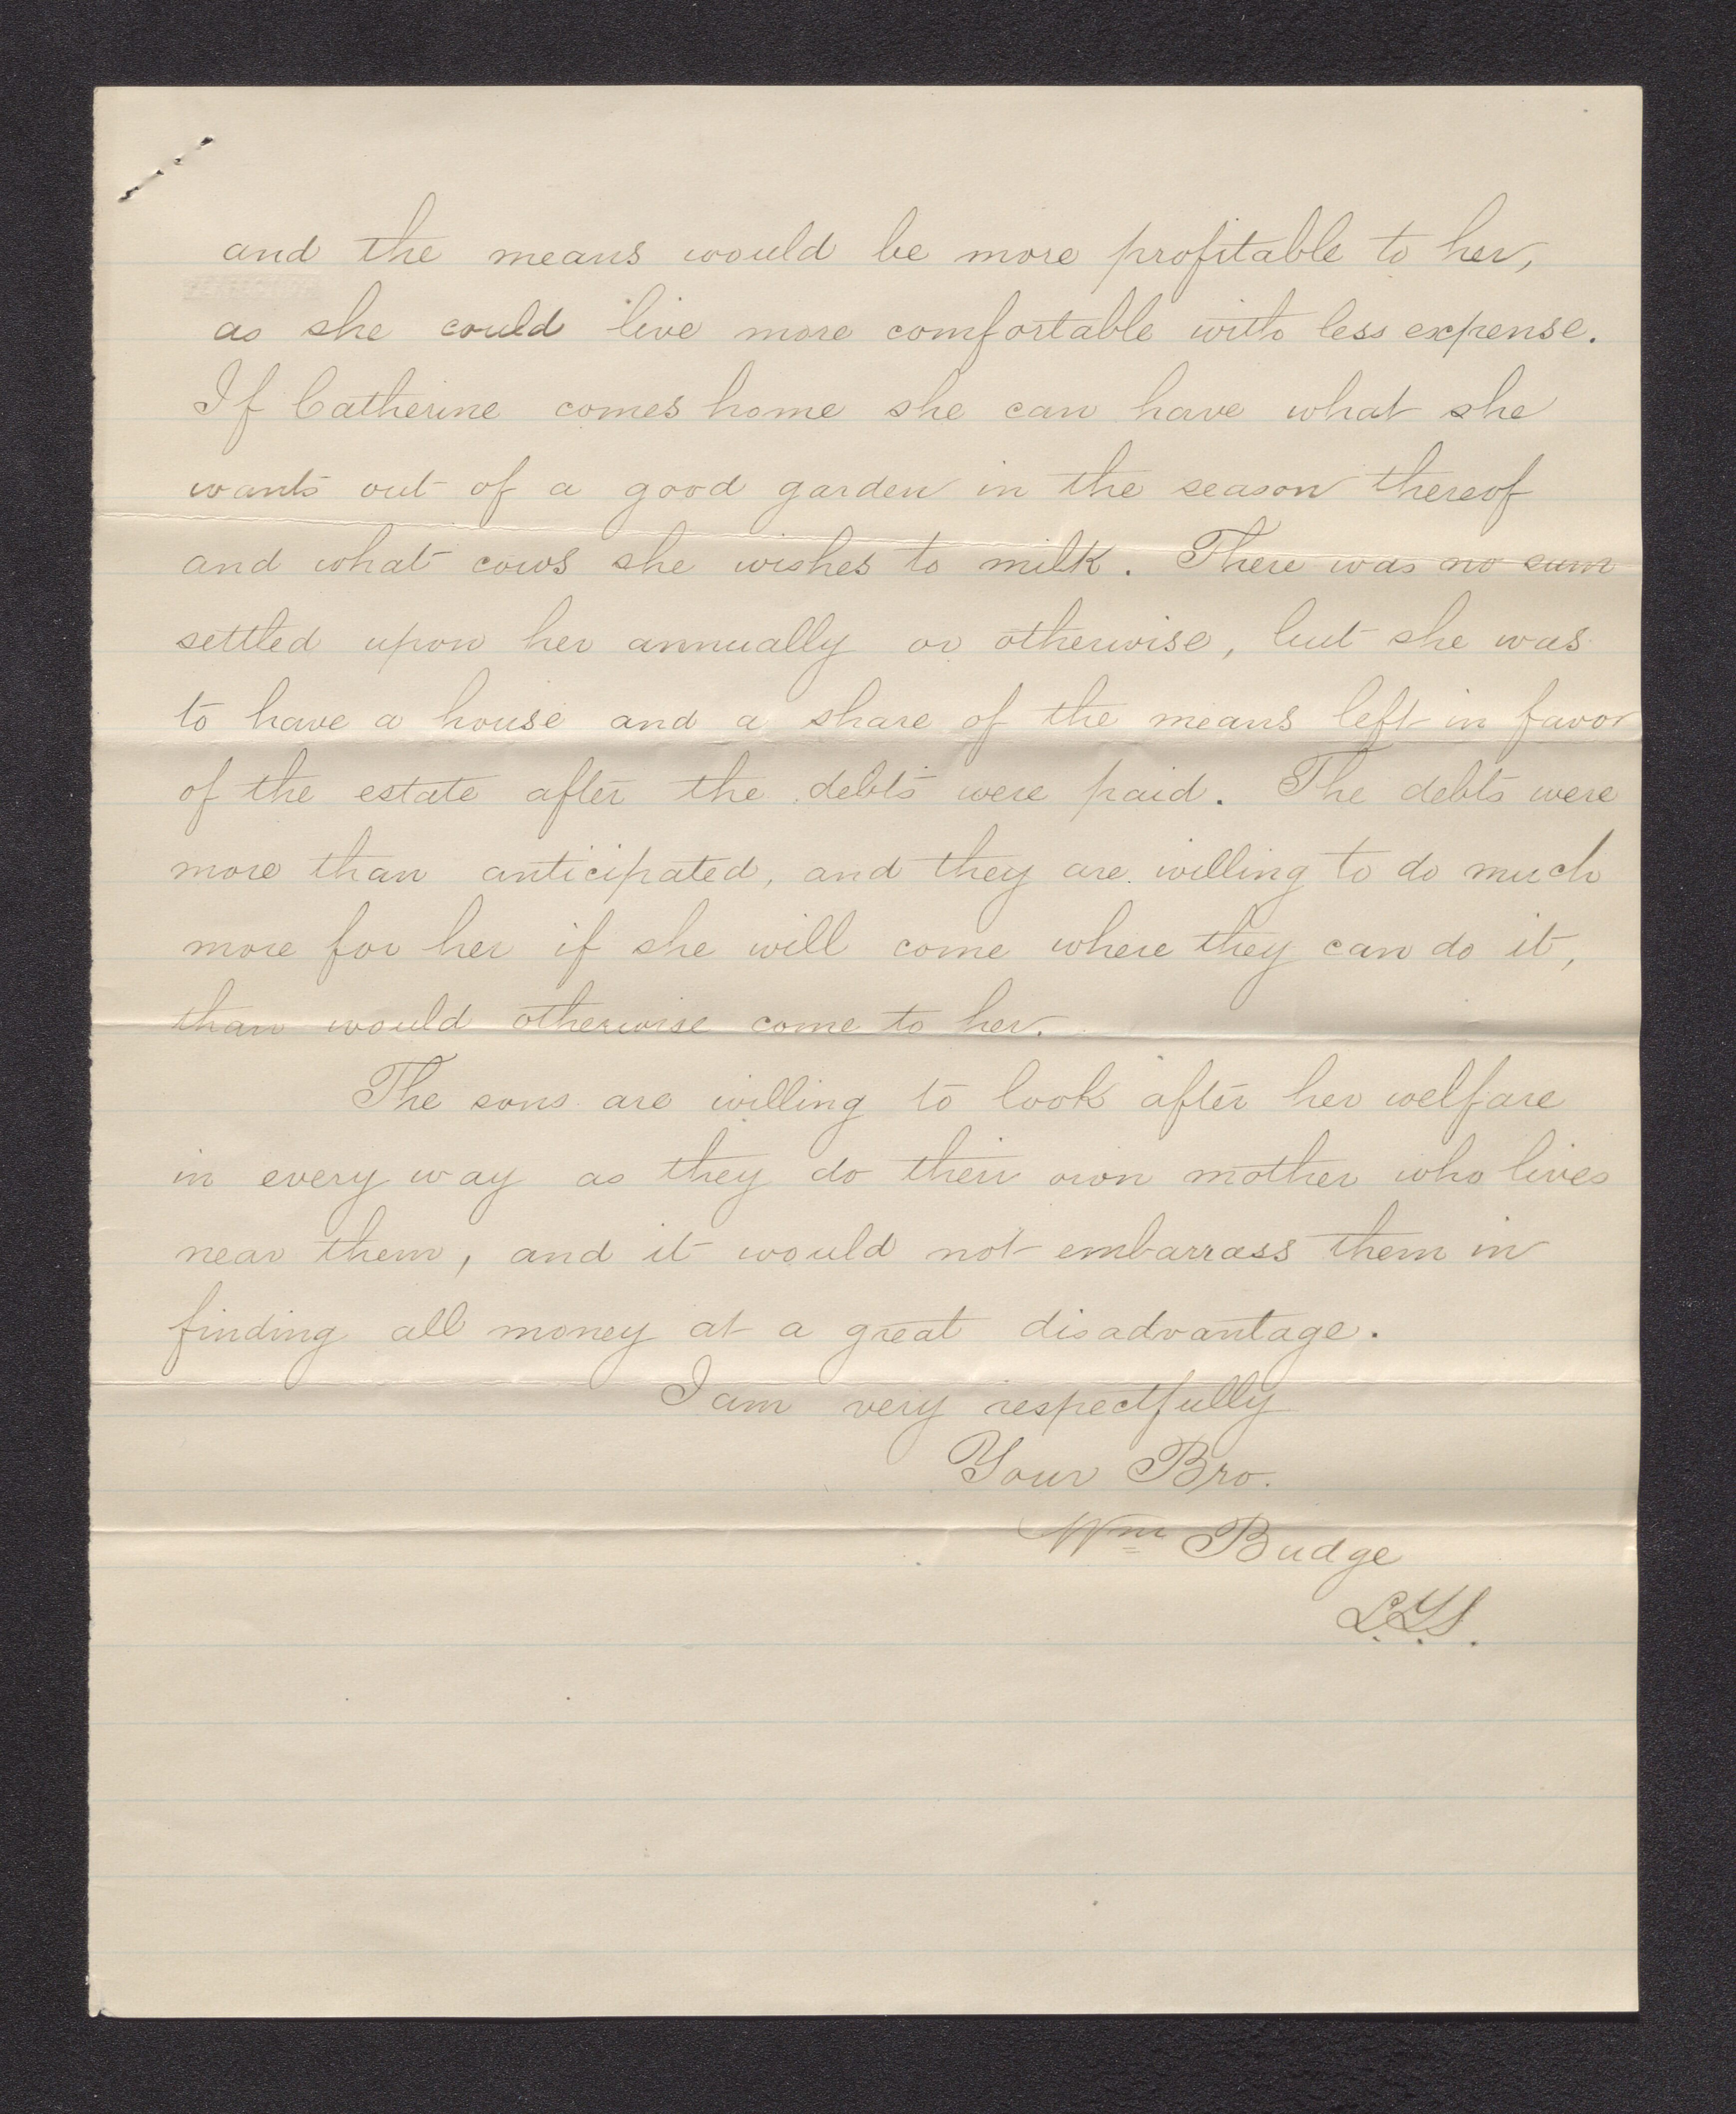 and the means would be more profitable to her,
as she could live more comfortable with less expense.
If Catherine comes home she can have what she
wants out of a good garden in the season thereof
and what cows she wishes to milk. There was no sum
settled upon her annually or otherwise, but she was
to have a house and a share of the means left in favor
of the estate after the debts were paid. The debts were
more than anticipated, and they are willing to do much
more for her if she will come where they can do it,
than would otherwise come to her.
The sons are willing to look after her welfare
in every way as they do their own mother who lives
near them, and it would not embarrass them in
finding all money at a great disadvantage.
I am very respectfully
Your Bro.
Wm Budge